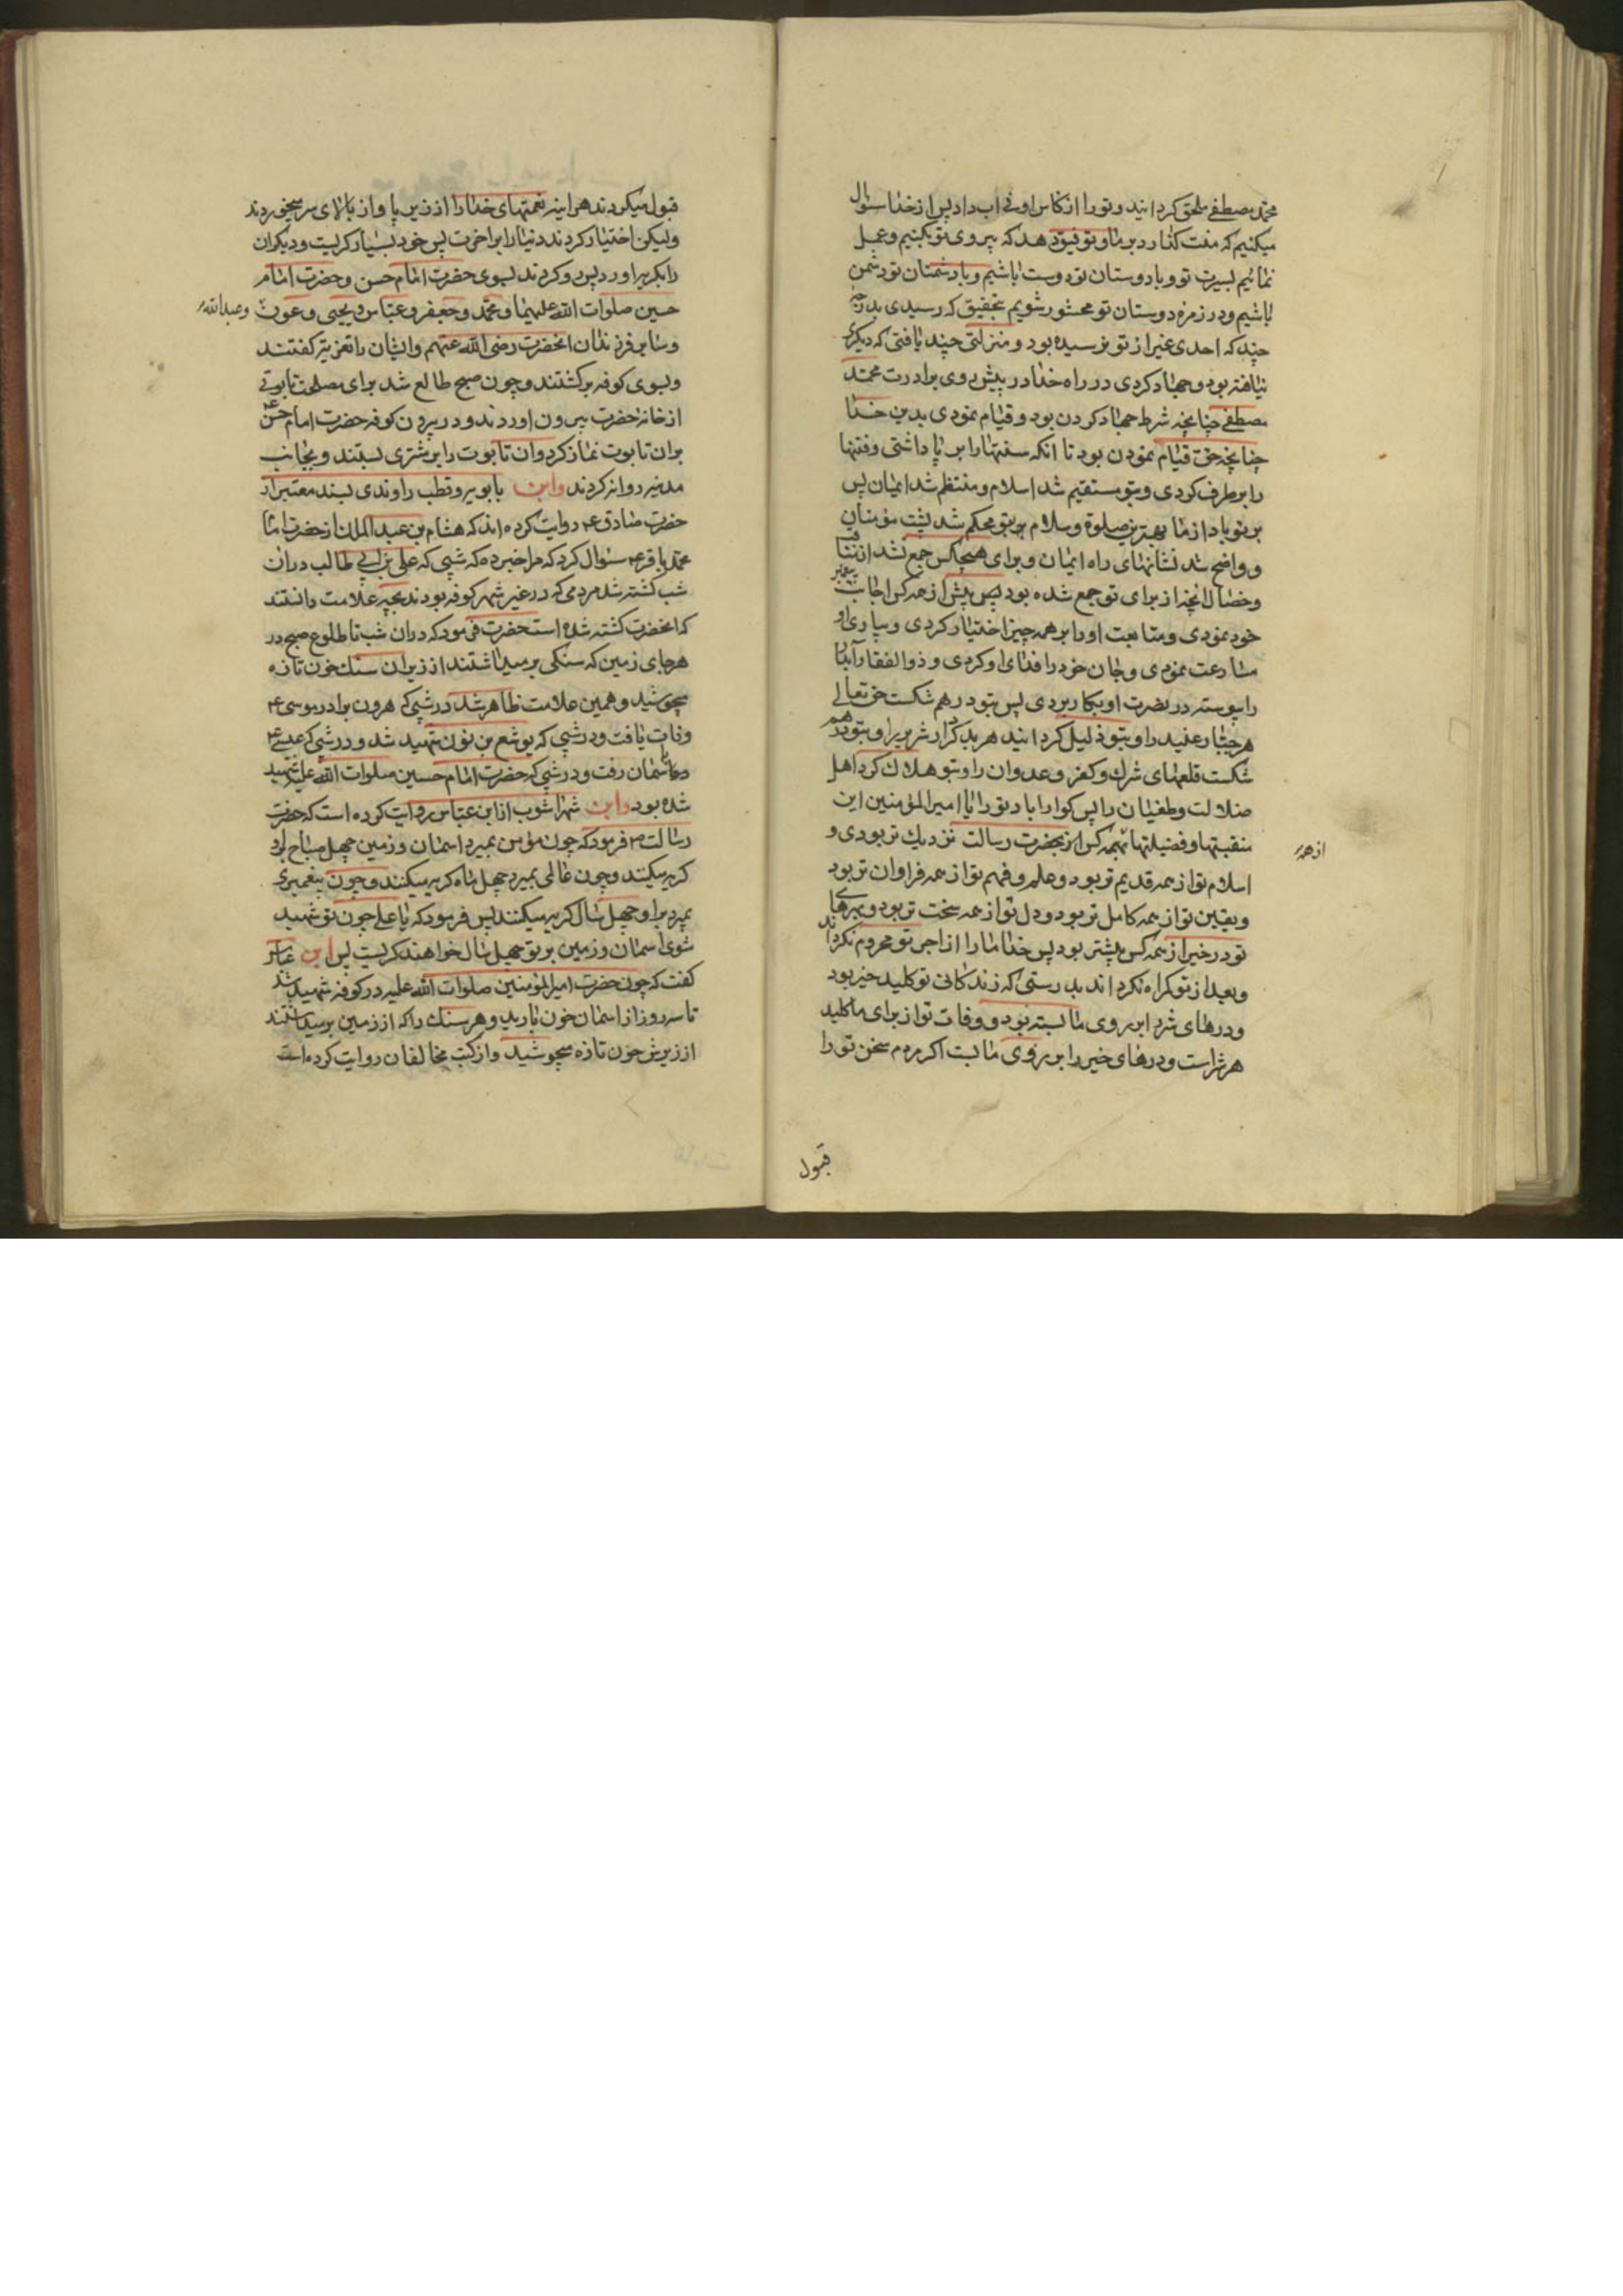 محمد مصطفی ملحق کرداند و تو را از کاس اوفی اب داد پس از خدا سئوال
میکنیم که منت کذارد بر ما و توفیق دهد که پیروی تو بکنیم و عمل
نمائیم بسیرت تو و با دوستان تو دوست باشیم و با دشمنان تو دشمن
باشیم و در زمره دوستان تو محشور شویم بتحقیق که رسیدی بدرجه
چند که احدی غیر از تو نرسیده بود و منزلتی چند یافتی که دیکری
نیافته بود و جهاد کردی در راه خدا در پیش روی برادرت محمد
مصطفی چنانچه شرط جهاد کردن بود و قیام نمودی بدین خدا
چنانچه حق قیام نمودن بود تا انکه سنتها را بر پا داشتی و فتنها
را برطرف کردی و بتو مستقیم شد اسلام و منتظم شد ایمان پس
بر تو باد از ما بهترین صلوة و سلام بتو محکم شد پشت مؤمنان
و واضح شد نشانهای راه ایمان و برای هیچکس جمع نشد از مناقب
و خصال انچه از برای تو جمع شده بود پس پیش از همه کس اجابت پیغمبر
خود نمودی و متابعت او را بر همه چیز اختیار کردی و بیاری او
مسارعت نمودی و جان خود را فدای او کردی و ذو الفقار آبدار
را پیوسته در نصرت او بکار بردی پس بتو در هم شکست حق تعالی
هر جبار عنید را و بتو ذلیل کرداند هر بد کردار شریر را و بتو در هم
شکست قلعهای شرک و کفر و عدوان را و بتو هلاک کرد اهل
ضلالت و طغیان را پس کوارا باد تو را یا امیر المؤمنین این
منقبتها و فضیلتها بهمه کس از بحضرت رسالت نزدیک تر بودی و
از همه
اسلام تو از همه قدیم تر بود و علم و فهم تو از همه فراوان تر بود
و یقین تو از همه کامل تر بود و دل تو از همه سخت تر بود و بهرهای
تو در خیر از همه کس بیشتر بود پس خدا ما را از اجر تو محروم نکرداند
و بعد از تو کمراه نکرداند بدرستی که زندکانی تو کلید خیر بود
و درهای شر را بر روی ما بسته بود و وفات تو از برای ما کلید
هر شر است و درهای خیر را بر روی ما بست اکر مردم سخن تو را
قبول
قبول میکردند هر اینه نعمتهای خدا را از زیر پا و از بالای سر میخوردند
ولیکن اختیار کردند دنیا را بر اخرت پس خود بسیار کریست و دیکران
را بکریه اورد پس رو کردند بسوی حضرت امام حسن و حضرت امام
حسین صلوات الله علیهما و محمد و جعفر و عباس و یحیی و عون و عبدالله
و سایر فرزندان انحضرت رضی الله عنهم و ایشان را تعزیه کفتند
و بسوی کوفه برکشتند و چون صبح طالع شد برای مصلحت تابوتی
از خانه حضرت بیرون اوردند و در بیرون کوفه حضرت امام حسن ع
بران تابوت نماز کرد و ان تابوت را بر شتری بستند و بجانب
مدینه روانه کردند وابن بابویه و قطب راوندی بسند معتبر از
حضرت صادق ع روایت کرده اند که هشام بن عبد الملک از حضرت امام
محمد باقر ع سئوال کرد که مرا خبر ده که شبی که علی بن ابی طالب دران
شب کشته شد مردمی که در غیر شهر کوفه بودند بچه علامت دانستند
که انحضرت کشته شده است حضرت فرمود که دران شب تا طلوع صبح در
هر جای زمین که سنکی برمیداشتند از زیر ان سنک خون تازه
میجوشید و همین علامت ظاهر شد در شبی که هرون برادر موسی ع
وفات یافت و در شبی که یوشع بن نون شهید شد و در شبی که عیسی ع
باسمان رفت و در شبی که حضرت امام حسین صلوات الله علیه شهید
شده بود وابن شهراشوب از ابن عباس روایت کرده است که حضرت
رسالت ص فرمود که چون مؤمن بمیرد اسمان و زمین چهل صباح براو
کریه میکنند و چون عالمی بمیرد چهل ماه کریه میکنند و چون پیغمبری
بمیرد براو چهل سال کریه میکنند پس فرمود که یا علی چون تو شهید
شوی اسمان و زمین بر تو چهل سال خواهند کریست پس ابن عباس
کفت که چون حضرت امیر المؤمنین صلوات الله علیه در کوفه شهید شد
تا سه روز از اسمان خون بارید و هر سنک را که از زمین برمیداشتند
از زیرش خون تازه میجوشید و از کتب مخالفان روایت کرده است